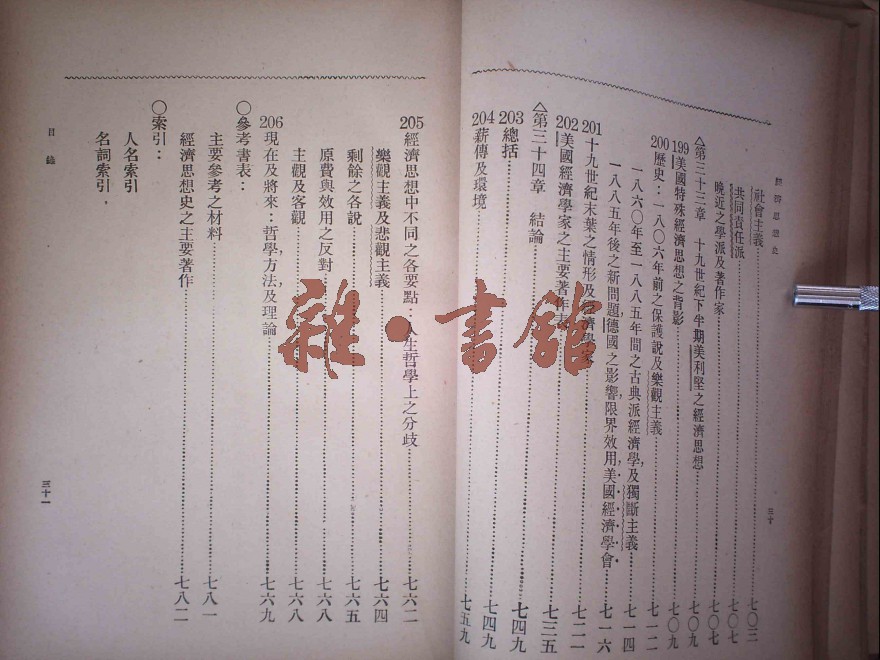 經濟思想史
三十
社會主義……七〇三
共同責任派……七〇七
晚近之學派及著作家……七〇七
△第三十三章 十九世紀下半期美利堅之經濟思想……七〇九
199美國特殊經濟思想之背影……七〇九
200歷史:一八〇六年前之保護說及樂觀主義……七一二
一八六〇年至一八八五年間之古典派經濟學,及獨斷主義……七一四
一八八五年後之新問題,德國之影響,限界效用,美國經濟學會……七一六
201十九世紀末葉之情形及經濟學家……七二一
202美國經濟學家之主要著作表……七三五
△第三十四章 結論……七三五
203總括……七四九
204薪傳及環境……七四九
七五九
205經濟思想中不同之各要點:人生哲學上之分歧……七六二
樂觀主義及悲觀主義……七六四
剩餘之各說……七六五
原費與效用之反對……七六八
主觀及客觀……七六八
206現在及將來:哲學,方法,及理論……七六九
〇參考書表:
主要參考之材料……七八一
經濟思想史之主要著作……七八二
〇索引:
人名索引
名詞索引.
目錄
三十一
雜·書館